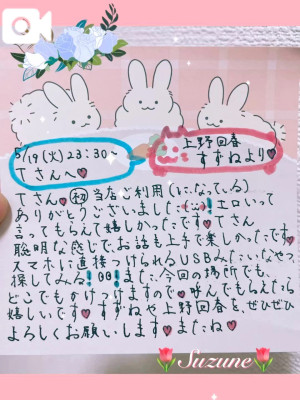 5/19(火)23:30
Tさんへ♥
上野回春
すずねより♥
Tさん♥初当店ご利用(になってる)
ありがとうございました(..)!エロいって
言ってもらえて嬉しかったです♥Tさん
聡明な感じで、お話も上手で楽しかったです♥
スマホに直接つけられるUSBみたいなやつ、
探してみる!00!また、今回の場所でも、
どこでもかけつけますので♥呼んでもらえたら
嬉しいです♥すずねや上野回春を、ぜひぜひ
よろしくお願いします♥またね♥
Suzune